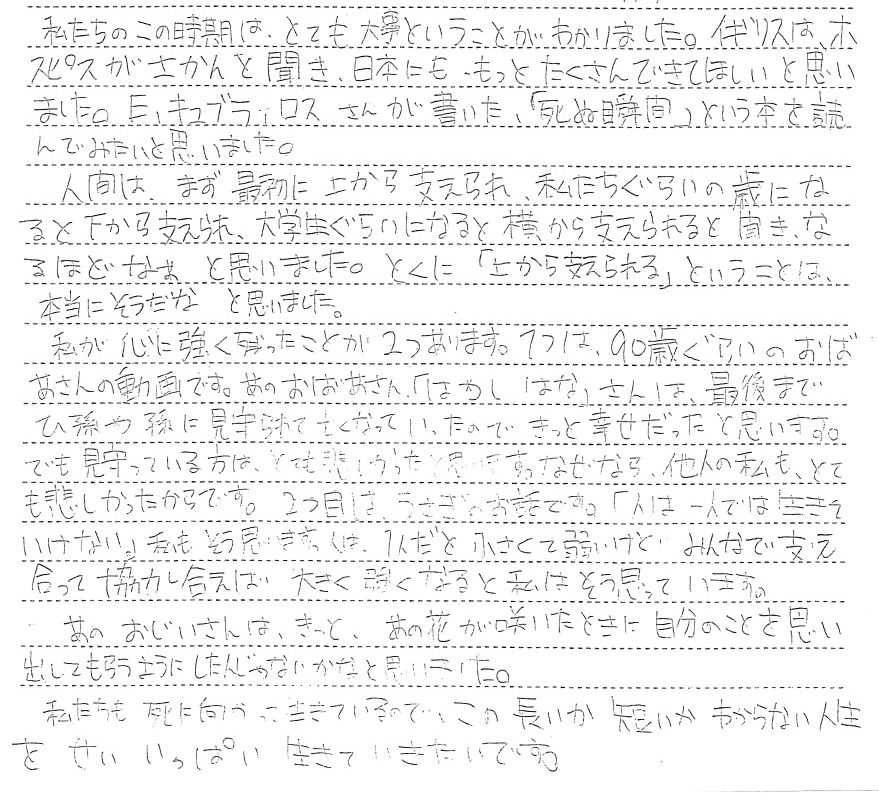 私たちのこの時期は、とても大事ということがわかりました。イギリスは、ホ
スピスがさかんと聞き、日本にも、もっとたくさんできてほしいと思い
ました。E,キュブラ,ロスさんが書いた、「死ぬ瞬間」という本を読
んでみたいと思いました。
人間は、まず最初に上から支えられ、私たちぐらいの歳にな
ると下から支えられ、大学生ぐらいになると横から支えられると聞き、な
るほどなぁと思いました。とくに「上から支えられる」ということは、
本当にそうだなと思いました。
私が心に強く残ったことが2つあります。1つは、90歳ぐらいのおば
あさんの動画です。あのおばあさん、「はかし はな」さんは、最後まで
ひ孫や孫に見守られて亡くなっていったのできっと幸せだったと思います。
でも見守っている方は、とても悲しかったと思います。なぜなら、他人の私も、とて
も悲しかったからです。2つ目は、うさぎのお話です。「人は一人では生きて
いけない。」私もそう思います。人は、1人だと小さくて弱いけど、みんなで支え
合って協力し合えば大きく強くなると私はそう思っています。
あのおじいさんは、きっと、あの花が咲いたときに自分のことを思い
出してもらうようにしたんじゃないかなと思いました。
私たちも死に向かって生きているので、この長いか短いかわからない人生
をせいいっぱい生きていきたいです。